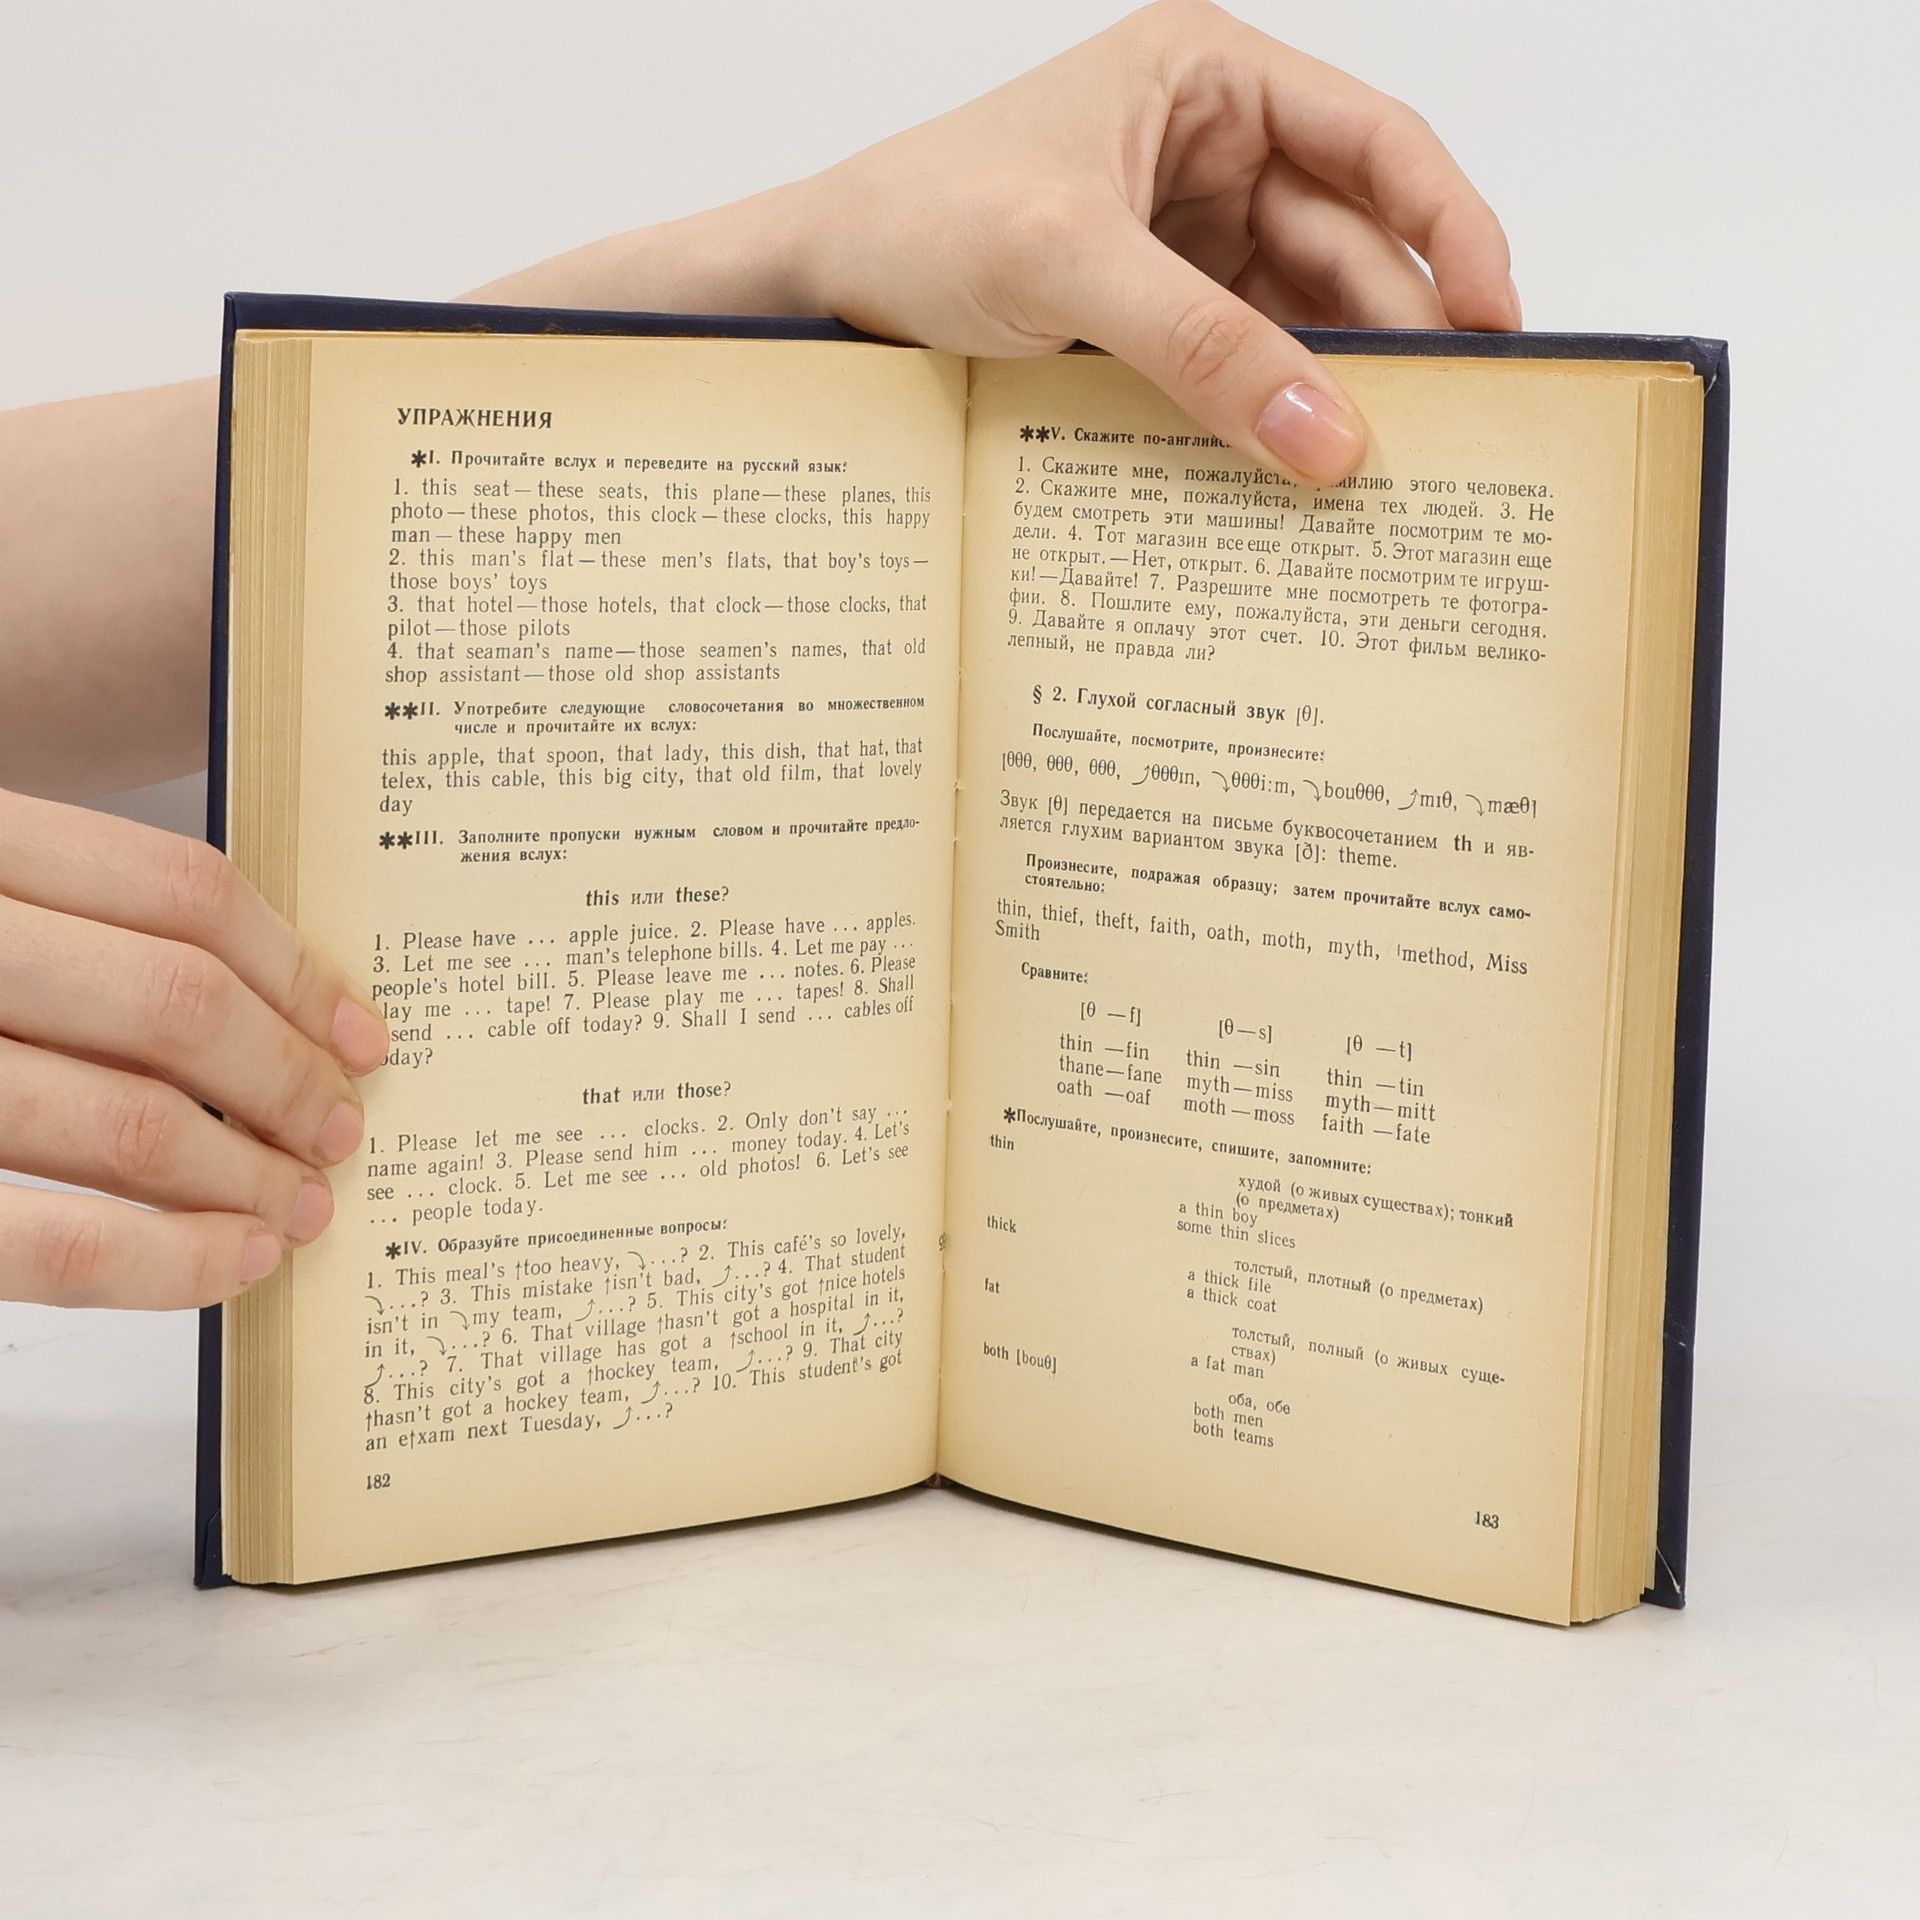 УПРАЖНЕНИЯ
✱I. Прочитайте вслух и переведите на русский язык:
1. this seat — these seats, this plane — these planes, this
photo — these photos, this clock — these clocks, this happy
man — these happy men
2. this man's flat — these men's flats, that boy's toys —
those boys' toys
3. that hotel — those hotels, that clock — those clocks, that
pilot — those pilots
4. that seaman's name — those seamen's names, that old
shop assistant — those old shop assistants
✱✱II. Употребите следующие словосочетания во множественном
числе и прочитайте их вслух:
this apple, that spoon, that lady, this dish, that hat, that
telex, this cable, this big city, that old film, that lovely
day
✱✱III. Заполните пропуски нужным словом и прочитайте предло-
жения вслух:
this или these?
1. Please have ... apple juice. 2. Please have ... apples.
3. Let me see ... man's telephone bills. 4. Let me pay ...
people's hotel bill. 5. Please leave me ... notes. 6. Please
lay me ... tape! 7. Please play me ... tapes! 8. Shall
send ... cable off today? 9. Shall I send ... cables off
oday?
that или those?
1. Please let me see ... clocks. 2. Only don't say ...
name again! 3. Please send him ... money today. 4. Let's
see ... clock. 5. Let me see ... old photos! 6. Let's see
... people today.
✱IV. Образуйте присоединенные вопросы:
1. This meal's ↑too heavy, ⤵...? 2. This café's so lovely,
⤵...? 3. This mistake ↑isn't bad, ⤴...? 4. That student
isn't in ⤵my team, ⤴...? 5. This city's got ↑nice hotels
in it, ⤵...? 6. That village ↑hasn't got a hospital in it,
⤴...? 7. That village has got a ↑school in it, ⤴...?
8. This city's got a ↑hockey team, ⤴...? 9. That city
↑hasn't got a hockey team, ⤴...? 10. This student's got
an e↑xam next Tuesday, ⤴...?
182
✱✱V. Скажите по-английс
1. Скажите мне, пожалуйста, милию этого человека.
2. Скажите мне, пожалуйста, имена тех людей. 3. Не
будем смотреть эти машины! Давайте посмотрим те мо-
дели. 4. Тот магазин все еще открыт. 5. Этот магазин еще
не открыт. — Нет, открыт. 6. Давайте посмотрим те игруш-
ки! — Давайте! 7. Разрешите мне посмотреть те фотогра-
фии. 8. Пошлите ему, пожалуйста, эти деньги сегодня.
9. Давайте я оплачу этот счет. 10. Этот фильм велико-
лепный, не правда ли?
§ 2. Глухой согласный звук [θ].
Послушайте, посмотрите, произнесите:
[θθθ, θθθ, θθθ, ⤴θθθɪn, ⤵θθθi:m, ⤵bouθθθ, ⤴mɪθ, ⤵mæθ]
Звук [θ] передается на письме буквосочетанием th и яв-
ляется глухим вариантом звука [ð]: theme.
Произнесите, подражая образцу; затем прочитайте вслух само-
стоятельно:
thin, thief, theft, faith, oath, moth, myth, ˈmethod, Miss
Smith
Сравните:
[θ — f] [θ — s] [θ — t]
thin — fin thin — sin thin — tin
thane — fane myth — miss myth — mitt
oath — oaf moth — moss faith — fate
✱Послушайте, произнесите, спишите, запомните:
thin
худой (о живых существах); тонкий
(о предметах)
a thin boy
some thin slices
thick
толстый, плотный (о предметах)
a thick file
a thick coat
fat
толстый, полный (о живых суще-
ствах)
a fat man
both [bouθ]
оба, обе
both men
both teams
183